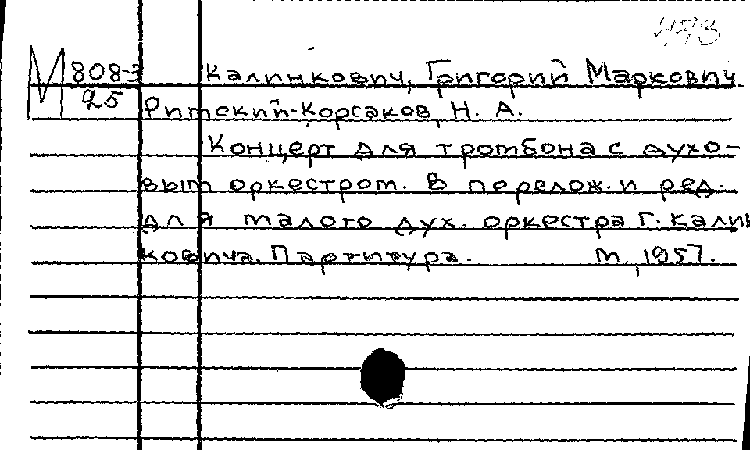 493
М 808-3 Калинкович, Григорий Маркович
25 Римский-Корсаков, Н. А.
Концерт для тромбона с духо-
вым оркестром. В перелож. и ред.
для малого дух. оркестра Г. Калин
ковича. Партитура. М, 1957.